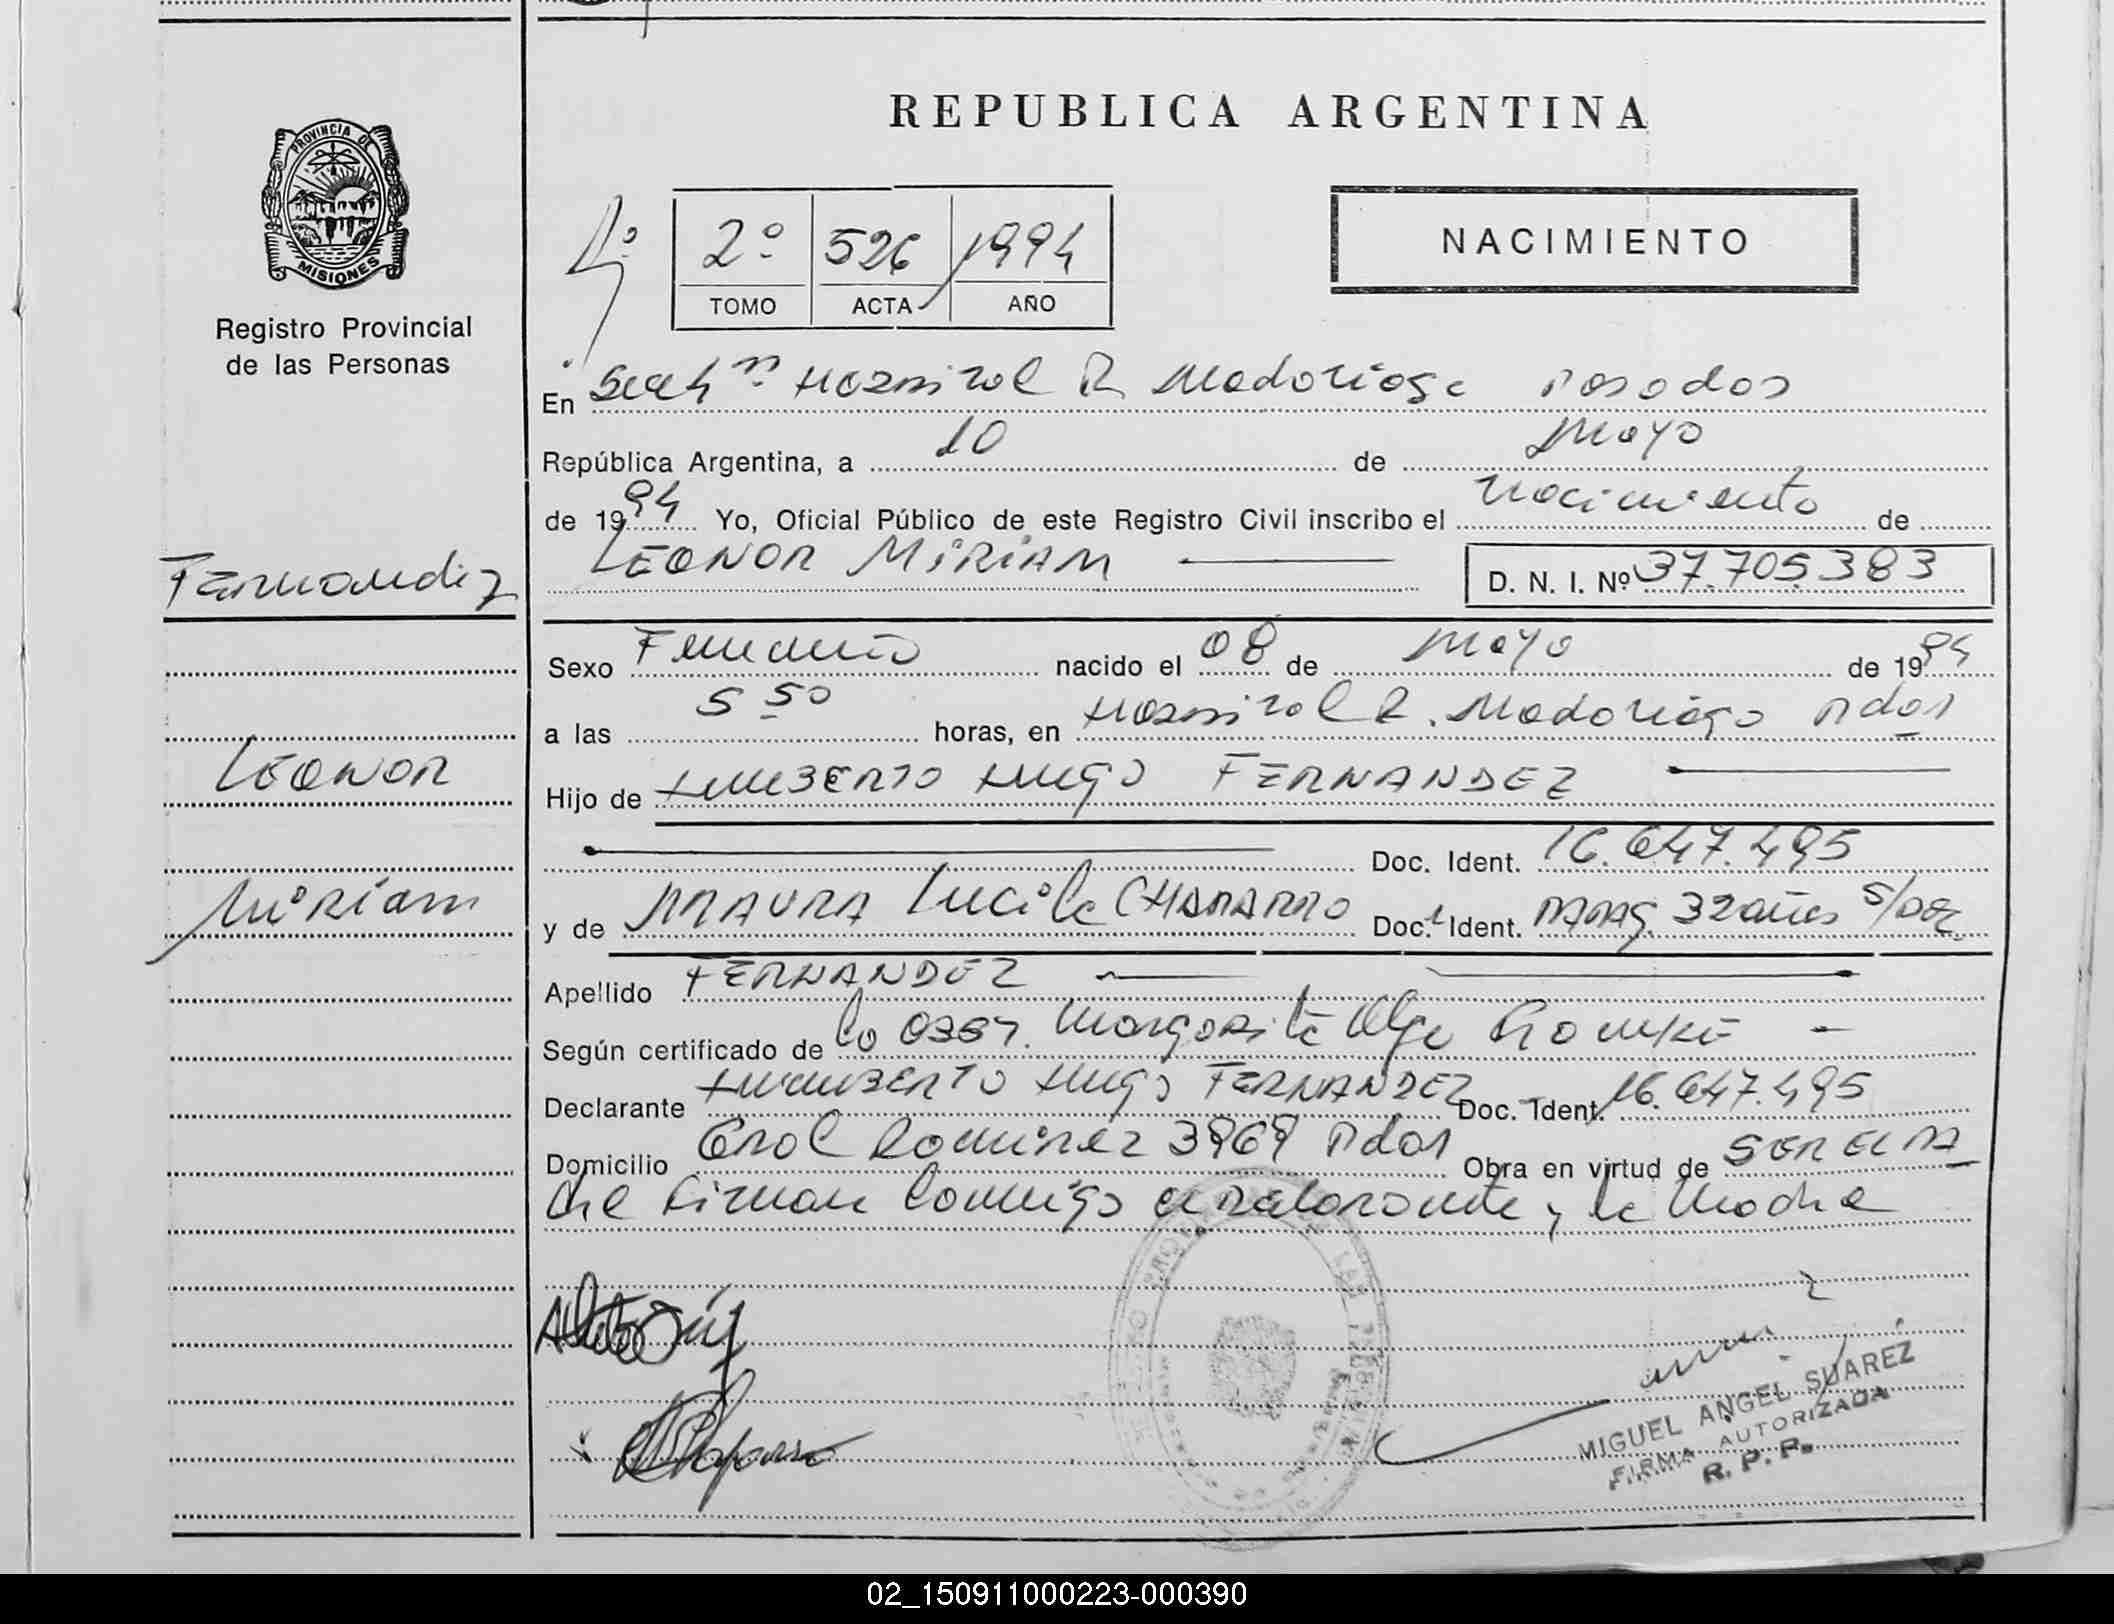 REPUBLICA ARGENTINA
PROVINCIA DE
MISIONES
Registro Provincial
de las Personas
2º 526 1994
TOMO ACTA AÑO
NACIMIENTO
En Hospital R Madariaga Posadas
República Argentina, a 10 de Mayo
de 1994 Yo, Oficial Público de este Registro Civil inscribo el Nacimiento de
LEONOR MIRIAM D. N. I. Nº 37.705.383
Fernandez
Leonor
Miriam
Sexo Femenino nacido el 08 de Mayo de 1994
a las 5 50 horas, en Hospital R. Madariaga Pdas
Hijo de Humberto Hugo FERNANDEZ
Doc. Ident. 16.647.495
y de MAURA Lucila CHAPARRO Doc. Ident. PARAG. 32 años s/doc
Apellido FERNANDEZ
Según certificado de la Obst. Margarita Olga
Declarante Humberto Hugo FERNANDEZ Doc. Ident. 16.647.495
Domicilio Ramirez 3969 Pdas Obra en virtud de SER EL PA
dre Firman Conmigo el declarante y la Madre
MIGUEL ANGEL SUAREZ
FIRMA AUTORIZADA
R. P. P.
02_150911000223-000390